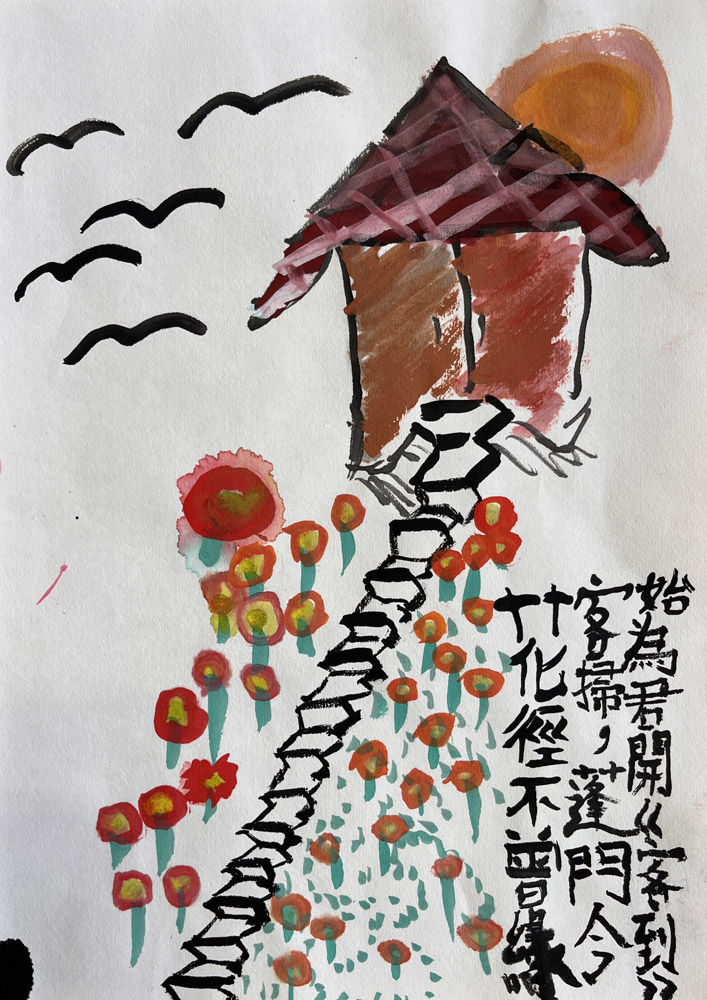 花徑不曾緣
客掃，蓬門今
始為君開《客到》